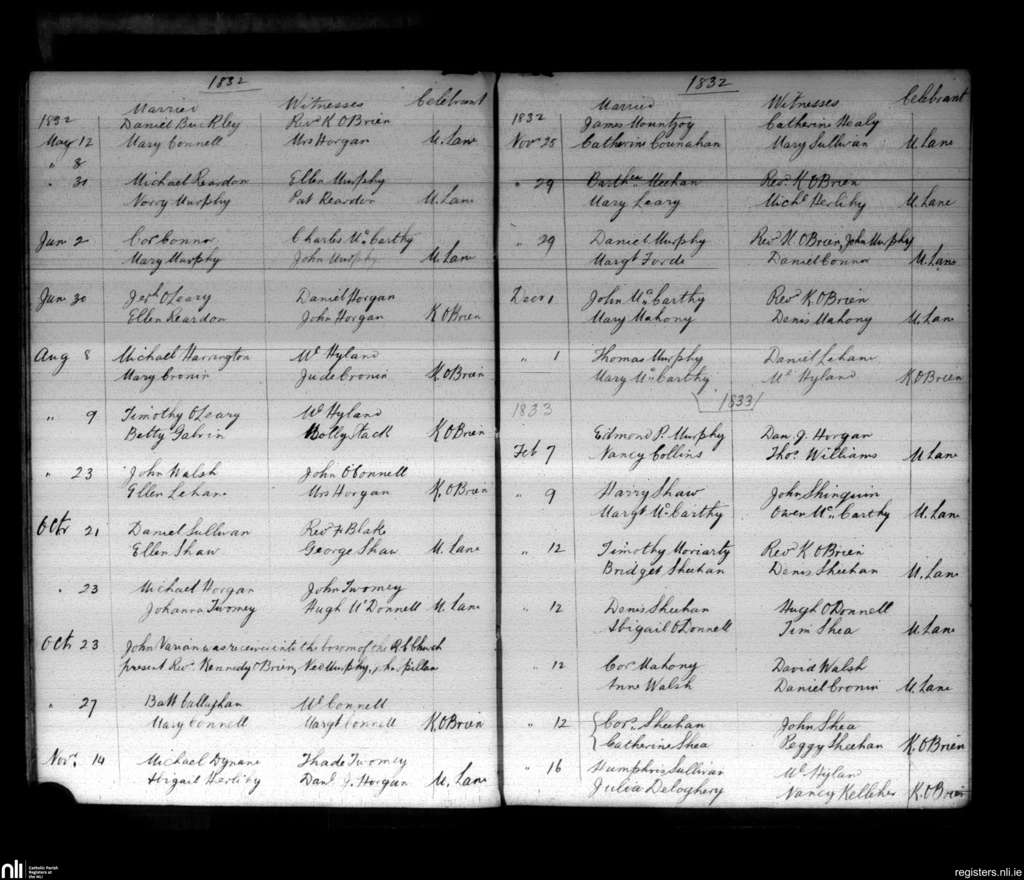 1832
Married Witnesses Celebrant
1832 Daniel Buckley Revd K OBrien
May 12 Mary Connell Mrs Horgan M. Lane
" 8
" 30 Michael Reardon Ellen Murphy
Norry Murphy Pat Reardon M. Lane
Jun 2 Cor Connor Charles McCarthy
Mary Murphy John Murphy M. Lane
Jun 30 Jerh OLeary Daniel Horgan
Ellen Reardon John Horgan K OBrien
Aug 8 Michael Harrington Wm Hyland
Mary Cronin Jude Cronin K OBrien
" 9 Timothy OLeary Wm Hyland
Betty Galvin Molly Stack K OBrien
" 23 John Walsh John OConnell
Ellen Lehane Mrs Horgan K. OBrien
Octr 21 Daniel Sullivan Revd Blake
Ellen Shaw George Shaw M. Lane
" 23 Michael Horgan John Twomey
Johanna Twomey Hugh McDonnell M. Lane
Octr 23 John Varian was received into the bosom of the R.C. Church
present Revd Kennedy OBrien, Murphy,
" 27 Batt Callaghan Wm Connell
Mary Connell Margt Connell K OBrien
Novr 14 Michael Dynane Thade Twomey
Abigail Herlihy Danl J. Horgan M. Lane
1832
Married Witnesses Celebrant
1832 James Mountjoy Catherine Healy
Nov 25 Catherine Counahan Mary Sullivan M. Lane
" 29 Meehan Revd K OBrien
Mary Leary Michl Herlihy M. Lane
" 29 Daniel Murphy Revd K OBrien, John Murphy
Margt Forde Daniel Connor M. Lane
Decr 1 John McCarthy Revd K OBrien
Mary Mahony Denis Mahony M. Lane
" 1 Thomas Murphy Daniel Lehane
Mary McCarthy Wm Hyland K. OBrien
1833 1833
Edmond P. Murphy Dan J. Horgan
Feb 7 Nancy Collins Thos Williams M Lane
" 9 Harry Shaw John Shinquin
Margt McCarthy Owen McCarthy M. Lane
" 12 Timothy Moriarty Revd K OBrien
Bridget Sheehan Denis Sheehan M. Lane
" 12 Denis Sheehan Hugh ODonnell
Abigail ODonnell Tim Shea M Lane
" 12 Cor Mahony David Walsh
Anne Walsh Daniel Cronin M Lane
" 12 Cors Sheehan John Shea
Catherine Shea Peggy Sheehan K. OBrien
" 16 Humphris Sullivan Wm Hylan
Julia Deloghery Nancy Kelleher K. OBrien
nli Catholic Parish
Registers at
the NLI
registers.nli.ie